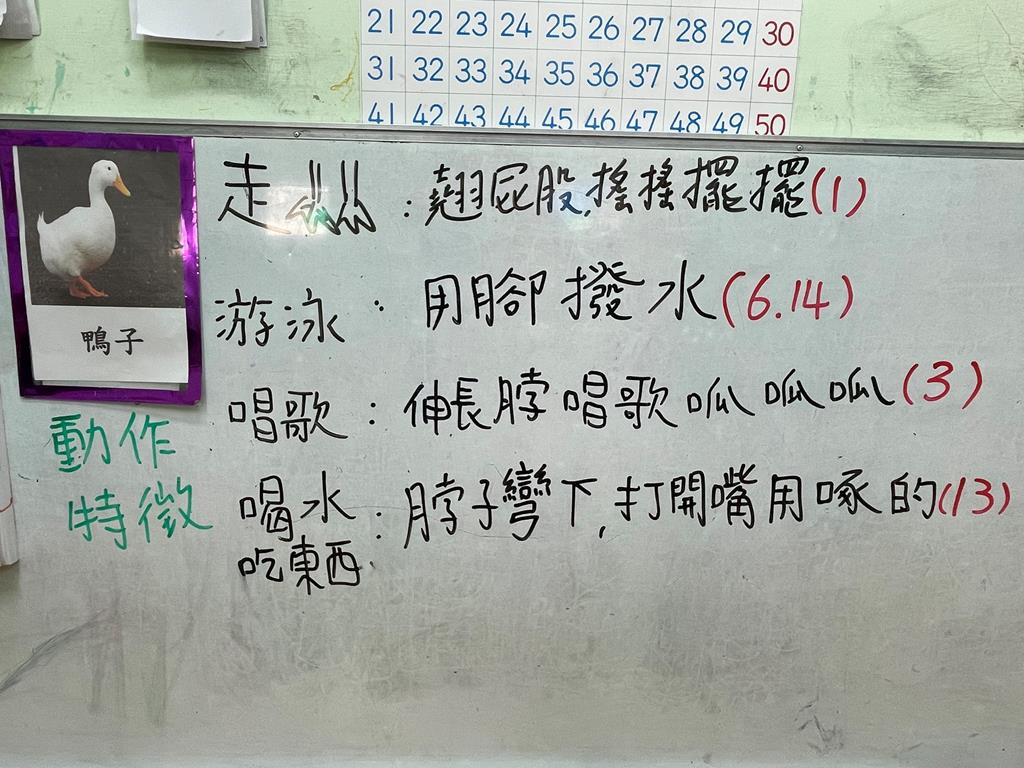 21 22 23 24 25 26 27 28 29 30
31 32 33 34 35 36 37 38 39 40
41 42 43 44 45 46 47 48 49 50
走 : 翹屁股,搖搖擺擺(1)
鴨子
游泳 : 用腳撥水(6.14)
唱歌 : 伸長脖唱歌呱呱呱(3)
動作
特徵
喝水 : 脖子彎下,打開嘴用啄的(13)
吃東西